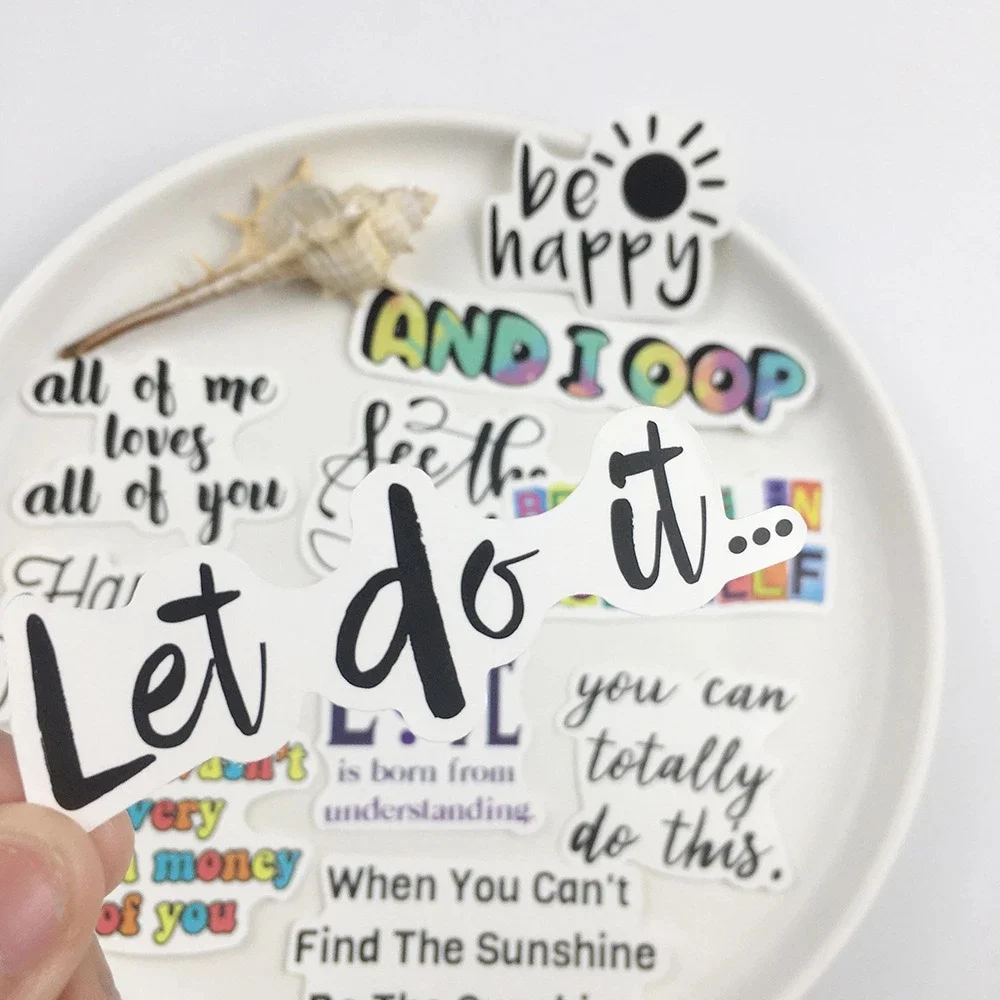 be
happy
AND I OOP
all of me
loves
all of you
See the
IN
Let do it...
is born from
understanding.
you can
totally
do this.
very
money
of you
When You Can't
Find The Sunshine